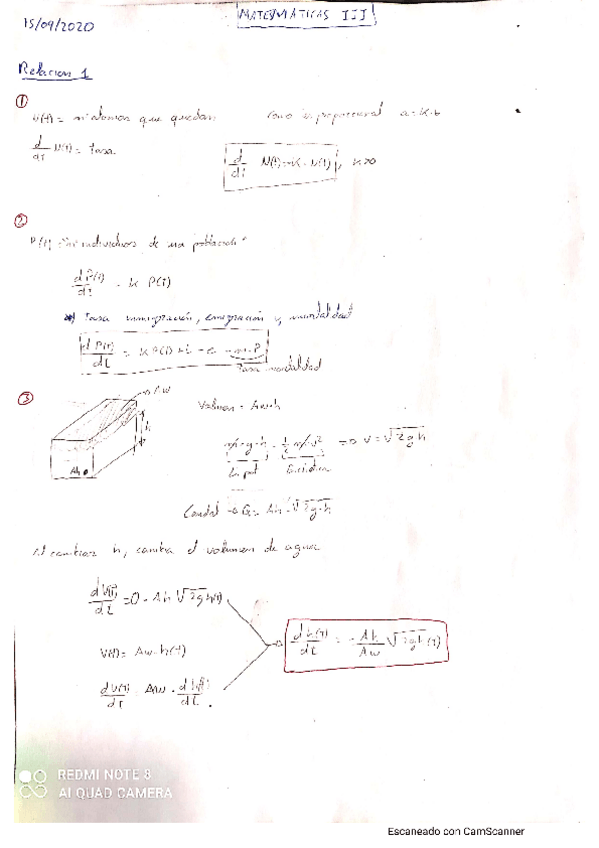 15/09/2020
MATEMÁTICAS III
Relación 1
①
N(t) = nº átomos que quedan
Como es proporcional a = k·b
d/dt N(t) = tasa
d/dt N(t) = -k · N(t), k>0
②
P(t) "nº individuos de una población"
dP(t)/dt = k P(t)
Tasa inmigración, emigración y mortalidad
dP(t)/dt = k P(t) + i - e - m·P
Tasa mortalidad
③
Aw
h
Ah
Volumen = Aw·h
m·g·h = 1/2 m v² ⇒ v = √2gh
E. pot
E. cinética
Caudal → Q = Ah · √2g·h
Al cambiar h, cambia el volumen de agua
dV(t)/dt = 0 - Ah √2gh(t)
dh(t)/dt = - Ah/Aw √2gh(t)
V(t) = Aw·h(t)
dV(t)/dt = Aw · dh(t)/dt
REDMI NOTE 8
AI QUAD CAMERA
Escaneado con CamScanner